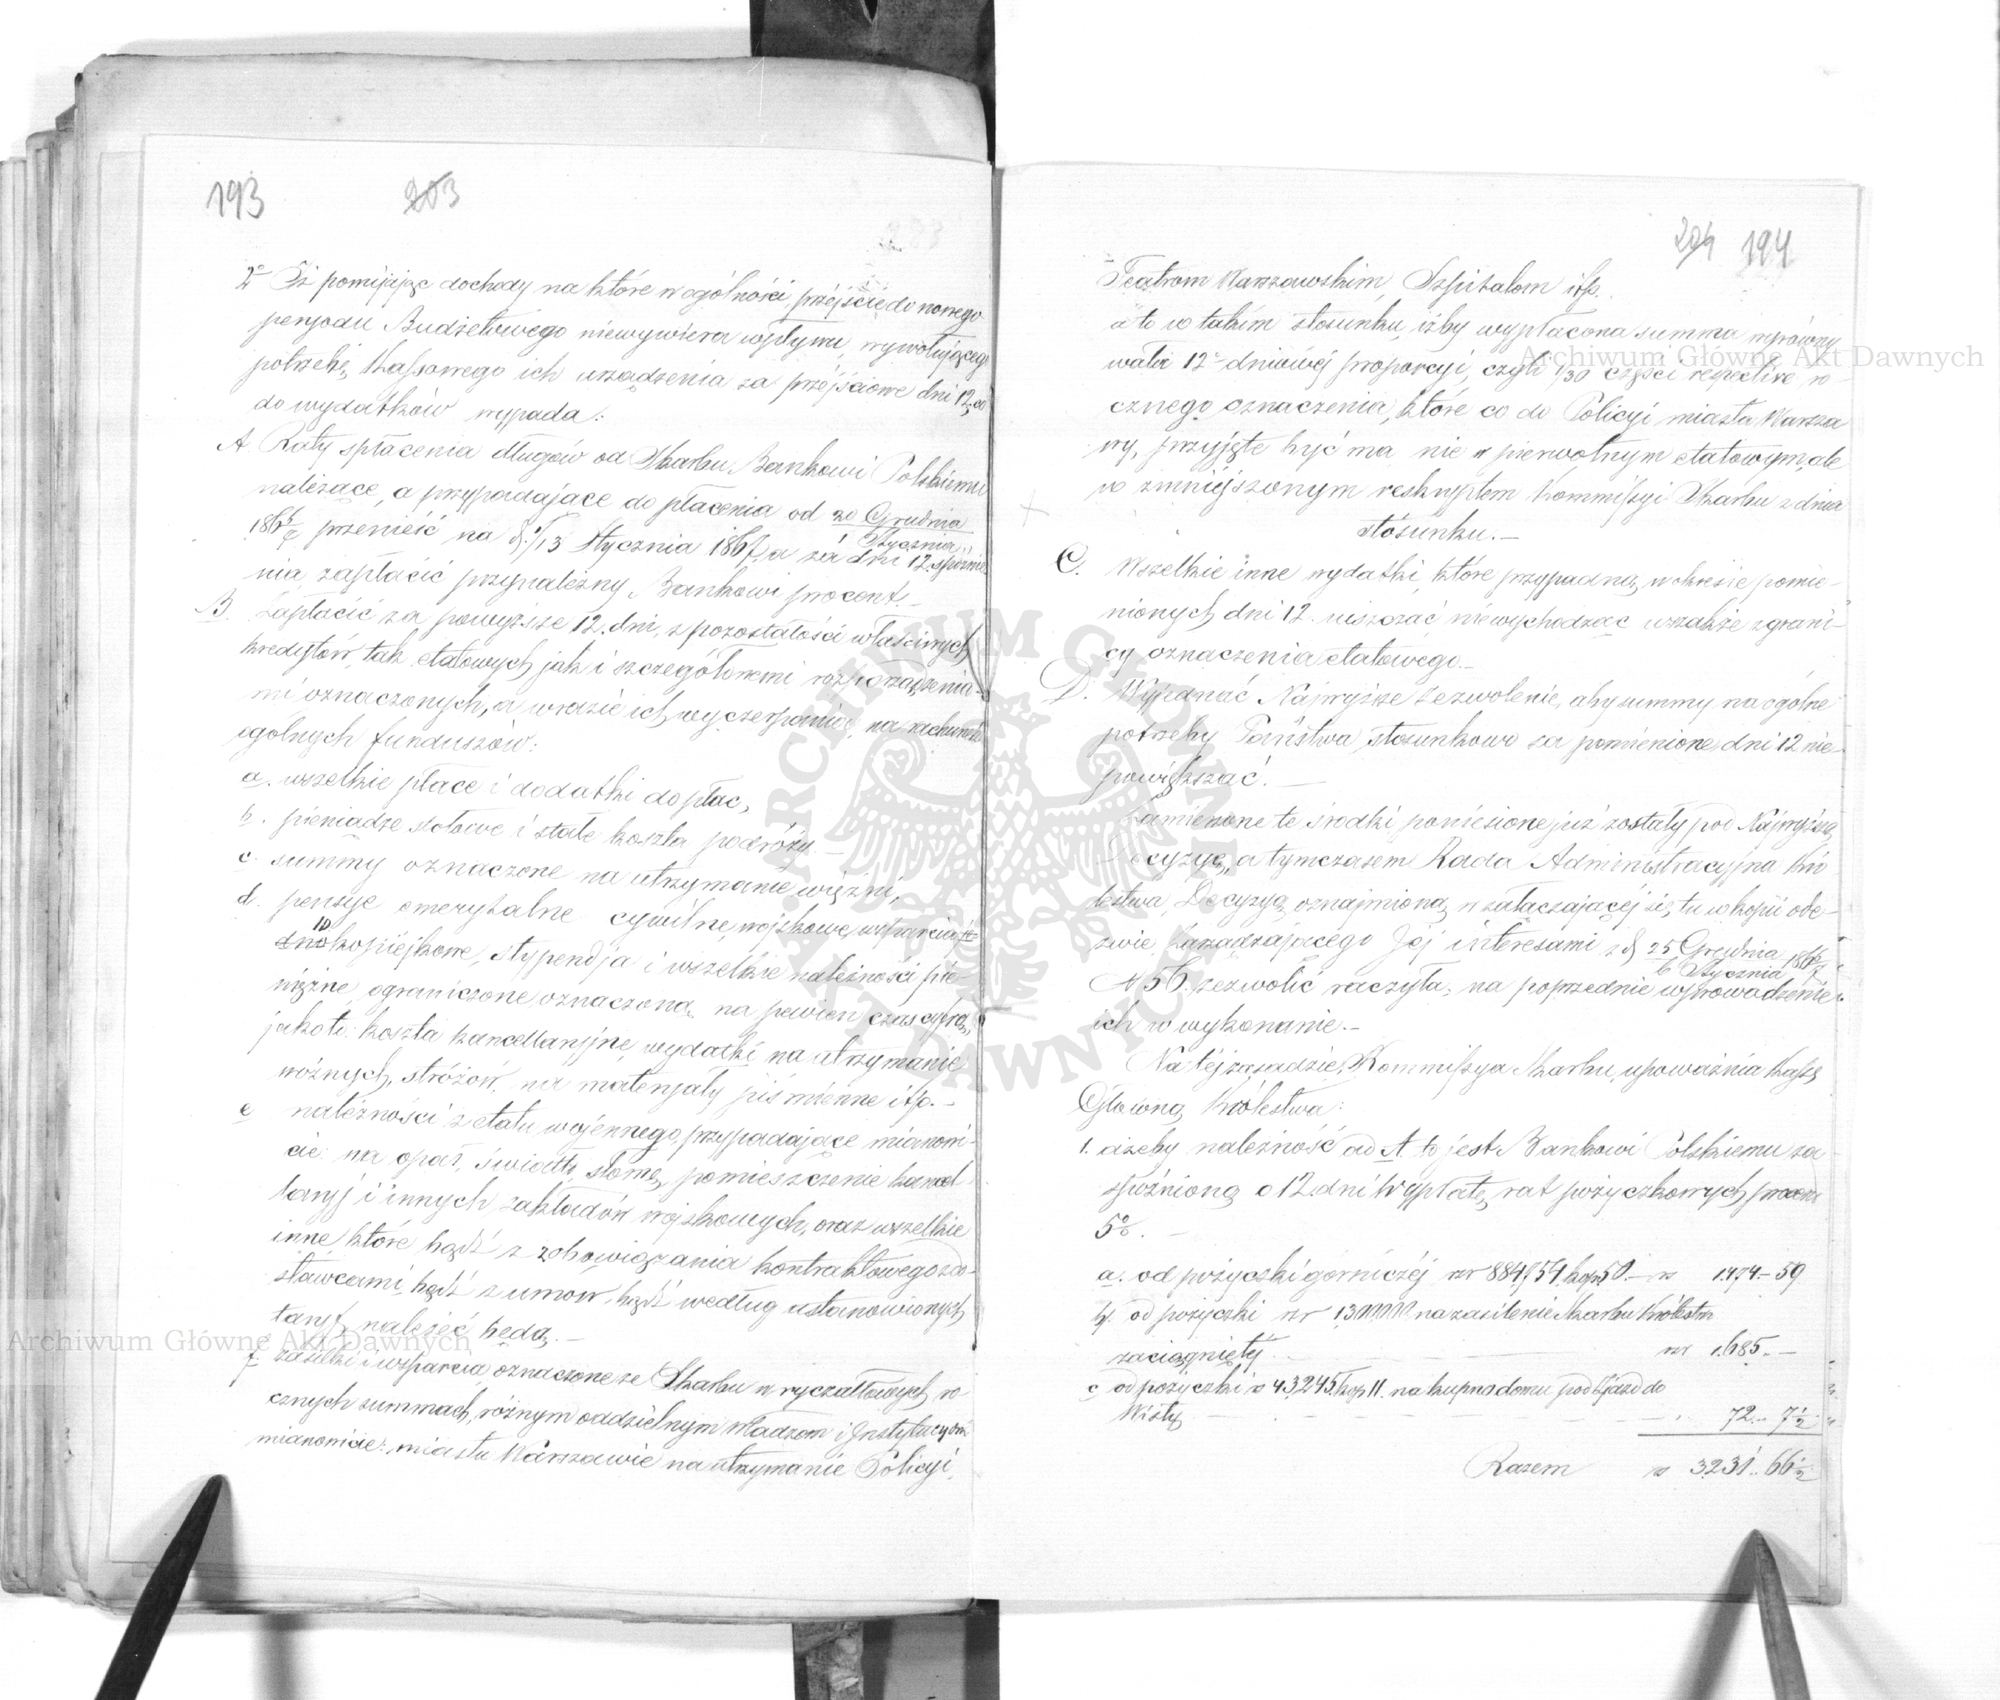 193 203
2° Iż pomijając dochody na które w ogólności przejście do nowego
peryodu Budżetowego niewywiera wpływu, wywołującego
potrzebę kassowego ich urządzenia za przejściowe dni 12, co
do wydatków wypada:
A Raty spłacenia długów od Skarbu Bankowi Polskiemu
należące, a przypadające do płacenia od 20 Grudnia
186 6/7 przenieść na d. 1/13 Stycznia 1867, a za dni 12. spóźnie
1 Stycznia
nia, zapłacić przynależny Bankowi procent.—
B. Zapłacić za powyższe 12. dni, z pozostałości właściwych
kredytów, tak etatowych jak i szczegółowemi rozporządzenia-
mi oznaczonych, a w razie ich wyczerpania, na rachunek
ogólnych funduszów:
a. wszelkie płace i dodatki do płac,
b. pieniądze stołowe i stałe koszta podróży.—
c. summy oznaczone na utrzymanie więźni,
d. pensye emerytalne cywilne, wojskowe, wsparcia je-
dnokopiejkowe, stypendja i wszelkie należności pie-
10
niężne ograniczone oznaczoną na pewien czas cyfrą,
jakoto: koszta kancellaryjne, wydatki na utrzymanie
woźnych, stróżów, na materyały piśmienne itp.—
e należności z etatu wojennego, przypadające mianowi-
cie: na opał, światło, słomę, pomieszczenie kancel-
laryj i innych zakładów wojskowych, oraz wszelkie
inne które bądź z zobowiązania kontraktowego z do-
stawcami, bądź z umów, bądź według ustanowionych
taryf, należeć będą.—
f. zasiłki i wsparcia oznaczone ze Skarbu w ryczałtowych ro-
cznych summach, różnym oddzielnym Władzom i Instytucyom
mianowicie: miastu Warszawie na utrzymanie Policyi,
204 194
Teatrom Warszawskim, Szpitalom itp.
a to w takim stosunku, iżby wypłacona summa wyrówny
wała 12° dniowej proporcyi, czyli 1/30 części respective ro-
cznego oznaczenia, które co do Policyi miasta Warsza
wy, przyjęte być ma nie w pierwotnym etatowym, ale
w zmniejszonym reskryptem Kommissyi Skarbu z dnia
stosunku.—
C. Wszelkie inne wydatki, które przypadną w okresie pomie-
nionych dni 12. uiszczać, niewychodząc wszakże z grani-
cy oznaczenia etatowego.—
D. Wyjednać Najwyższe zezwolenie, aby summy na ogólne
potrzeby Państwa, stosunkowo za pomienione dni 12 nie
powiększać.—
Zamierzone te środki, poniesione już zostały pod Najwyższą
Decyzyę, a tymczasem Rada Administracyjna Kró
lestwa, Decyzyą oznajmioną w załączającej się tu w kopii ode-
zwie Zarządzającego Jej interesami z d. 25 Grudnia 186 6/7
6 Stycznia
N 56. zezwolić raczyła, na poprzednie wprowadzenie
ich w wykonanie.—
Na tej zasadzie, Kommissya Skarbu, upoważnia Kassę
Główną Królestwa:
1. ażeby należność ad A. to jest: Bankowi Polskiemu za
spóźnioną o 12. dni wypłatę rat pożyczkowych procent
5%.—
a. od pożyczki górniczej rsr 884,754 kop 50.— rs 1.474–59
b. od pożyczki rsr na zasilenie Skarbu Królestwa
zaciągnięty rsr 1.685.—
c. od pożyczki rs 43,245. kop 11. na kupno domu pod Zjazd do
Wisły 72.. 7 1/2
Razem rs 3.231.. 66 1/2
ARCHIWUM GŁÓWNE AKT DAWNYCH
Archiwum Główne Akt Dawnych
Archiwum Główne Akt Dawnych